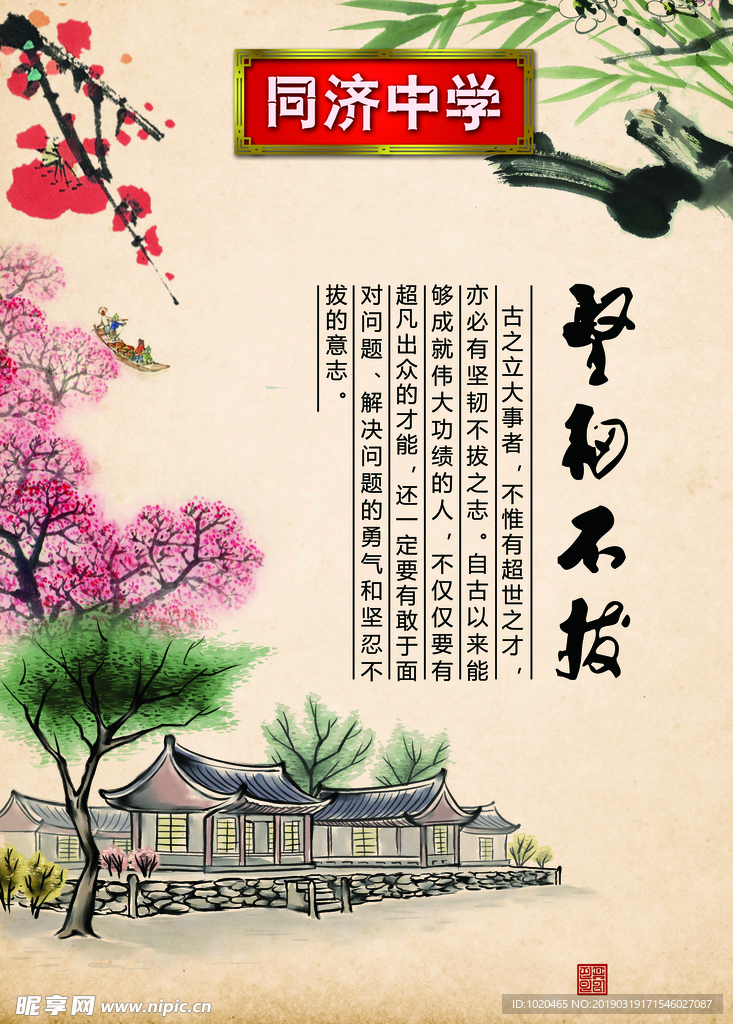 同济中学
坚韧不拔
古之立大事者，不惟有超世之才，
亦必有坚韧不拔之志。自古以来能
够成就伟大功绩的人，不仅仅要有
超凡出众的才能，还一定要有敢于面
对问题、解决问题的勇气和坚忍不
拔的意志。
昵享网 www.nipic.cn
ID:1020465 NO:20190319171546027087